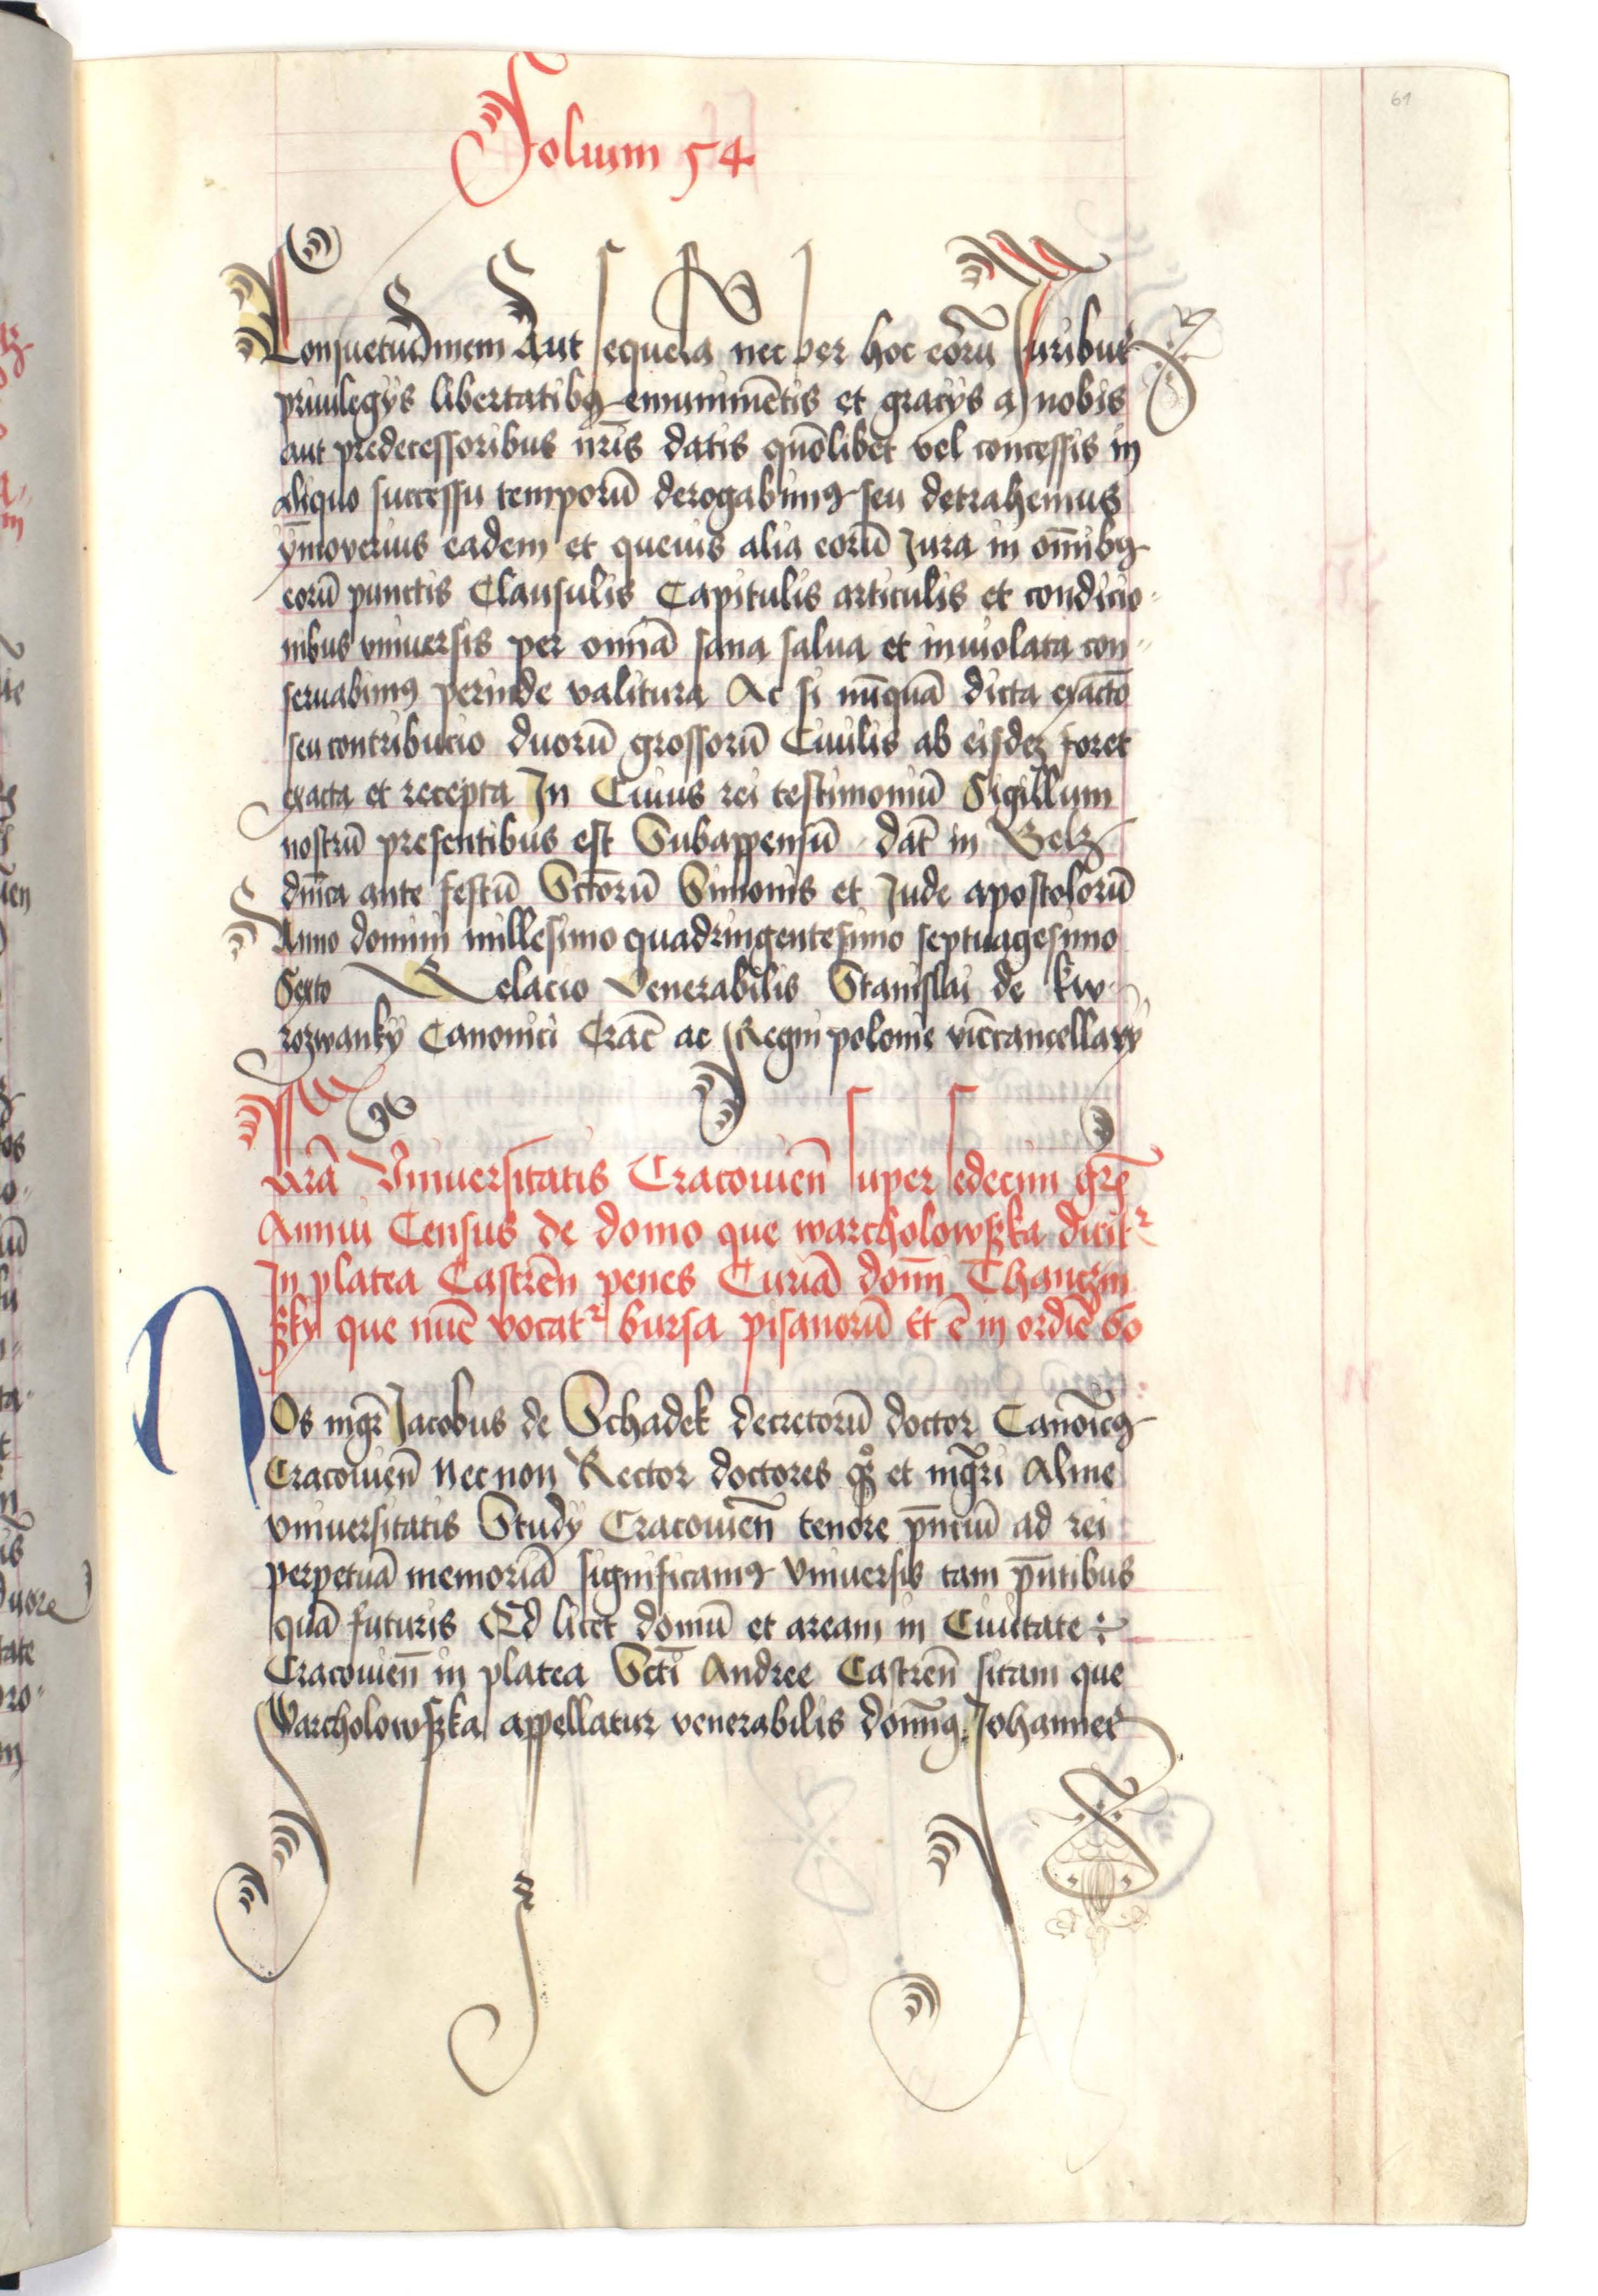 61
Folium 54
Consuetudinem Aut sequela nec per hoc eorū Juribus
priuilegijs libertatibꝯ emunimētis et gracijs a nobis
aut predecessoribus nr̄is datis quōlibet vel concessis in
aliquo successu temporū derogabimꝯ seu detrahemus
ȳmoverius eadem et queuis alia eorū Jura in om̄ibꝯ
eorū punctis Clausulis Capitulis articulis et condicio-
nibus vniuersis per omnā sana salua et inuiolata con-
seruabimꝯ perinde valitura Ac si nūquā dicta exactō
seu contribucio duorū grossorū Ciuilis ab eisdeꝫ foret
exacta et recepta In Cuius rei testimoniū Sigillum
nostrū presentibus est Subappensū dat̄ in Belz
dn̄ica ante festū Sctōrū Simonis et Jude apostolorū
Anno domini millesimo quadringentesimo septuagesimo
Sexto Relacio Venerabilis Stanislai de kw-
rozwanky Canonici Crac̄ ac Regni polonie vicēcancellarij
Lr̄a Vniuersitatis Cracouien̄ super sedecim gr̄s
Annui Census de domo que warcholowszka dicitᷣ
In platea Castren̄ penes Curiā domī Thanczin
szky que nūc vocatᷣ bursa pisanorū Et ē in ordiē 60
NOs mgr̄ Jacobus de Schadek decretorū doctor Canoīcꝯ
Cracouien̄ Necnon Rector doctores qꝫ et mgr̄i Alme
vniuersitatis Studij Cracouien̄ tenore pn̄ciū ad rei
perpetuā memoriā significamꝯ Vniuersis tam pn̄tibus
quā futuris Qd licet domū et aream in Ciuitate
Cracouien̄ in platea Scti Andree Castren̄ sitam que
Warcholowszka appellatur venerabilis domīꝯ Johannes